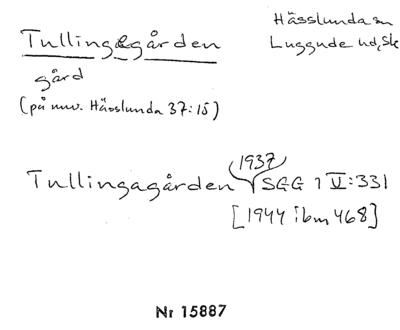 Tullingagården
Hässlunda sn
Luggude hd, Sk
gård
(på nuv. Hässlunda 37:15)
1937
Tullingagården SGG 1 V:331
[1944 ibm 468]
Nr 15887